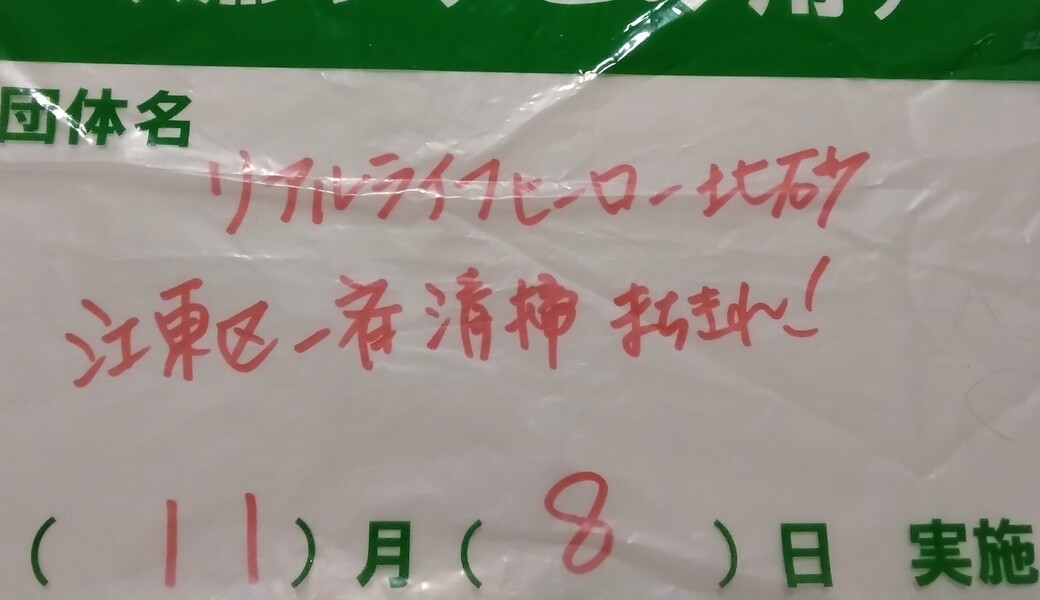 団体名
リアルライフヒーロー北砂
江東区一斉清掃 まちきれ!
(11)月(8)日 実施